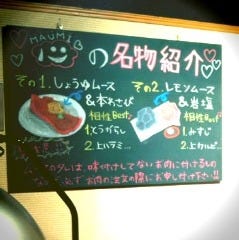 MAUMIB
の名物紹介
その1.しょうゆムース
&本わさび
相性Best
1.とうがらし
2.上ハラミ...
その2.レモンソース
&岩塩
相性Best
1.みすじ
2.上カルビ...
タレは、味付けしてないお肉に付けるもの
お肉の注文の際にお申し付け下さい!!